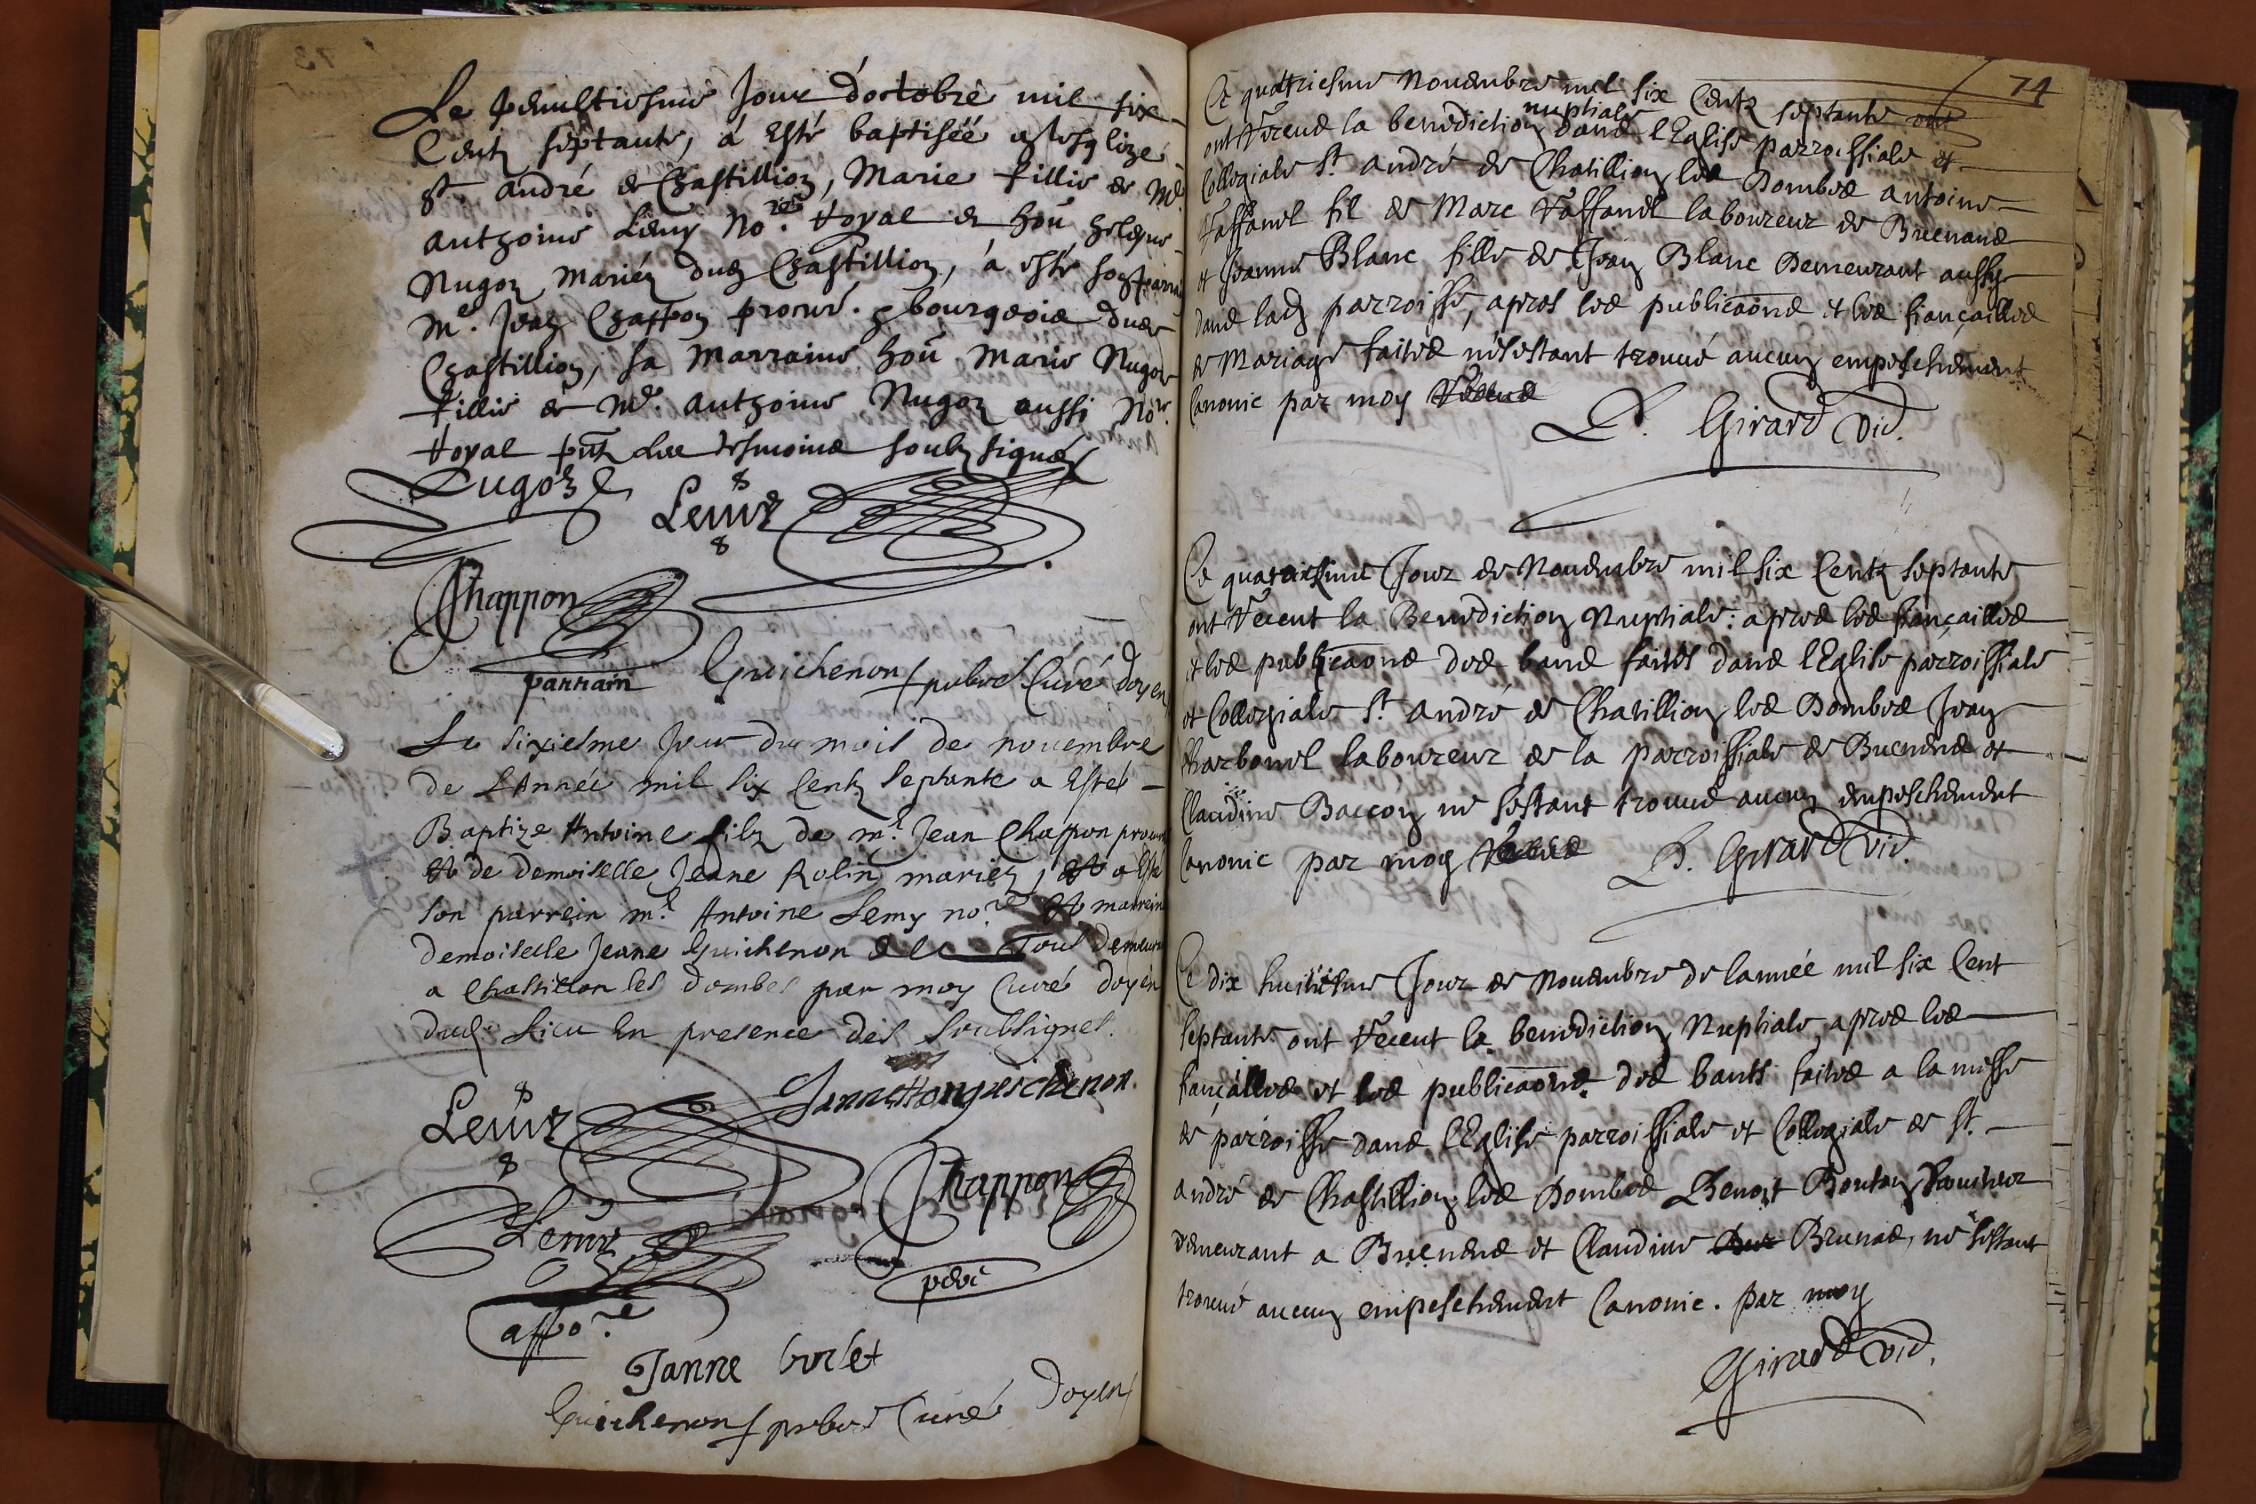 Le penultiesme Jour d'octobre mil six
Centz septante, á Esté baptiséé a lesglize
St andré de Chastillion, Marie fillie de Me
anthoine Lemy No.re Royal et hon̄ heleyne
Nugoz mariéz dud Chastillion, a esté son parrain
Me. Jean Chappon procur. & bourgeois dud
Chastillion, sa marraine hon̄ Marie Nugoz
fillie de Me. anthoine Nugoz aussi No.re
Royal pn̄t les tesmoins soubz signéz
Nugoz
Lemy
Chappon
parrain
Guichenon pbre Curé doyen
Le sixiesme Jour du mois de nouembre
de L'Année mil six Centz septante a Esté
Baptize Antoine filz de me Jean Chappon procur
Et de demoiselle Jeane Rolin mariéz, Et a Esté
son parrein me Antoine Lemy no.re Et marreine
demoiselle Jeane Guichenon Tous demeura
a Chastillon les dombes par moy Curé doyen
dud. Lieu En presence des soubsignes.
Jannethonguichenon.
Lemy
Chappon
Lemy
pere
Janne
Guichenon pbre Curé Doyen
74
Ce quattriesme Nouembre mil six Centz septante ont
ont Receus la benediction nuptiale dans l'Eglise parroissiale et
Collegiale St. andré de Chatillion les Dombes antoine
fil de Marc laboureur de Buenans
et Jeanne Blanc fille de Jean Blanc Demeurant aussy
dans lad parroisse, apres les publicaōns et les fiançailles
de Mariage faites n'esestant trouué aucun empeschement
Canonic par moy
B. Girard vic.
Ce quatriesme Jour de Nouembre mil six Centz septante
ont Receut la Benediction Nuptiale: apres les fiançailles
et les publicaōns des bans faites dans l'Eglise parroissiale
et Collegiale St. andré de Chatillion les Dombes Jean
Charbonel laboureur de la parroissiale de Buenens et
Claudine Baccon ne s'estant trouué aucun empeschement
Canonic par moy
B. Girard Vic.
Ce dix huitiesme Jour de Nouembre de lannée mil six Cent
septante ont Receut la benediction Nuptiale apres les
fiançailles et les publicaōns des bants faites a la messe
de parroisse dans l'Eglise parroissiale et Collegiale de St.
andré de Chastillion les Dombes Benoit Bonten
demeurant a Buenens et Claudine Brunas, ne s'estant
trouué aucun empeschement Canonic. par moy
Girard vic.